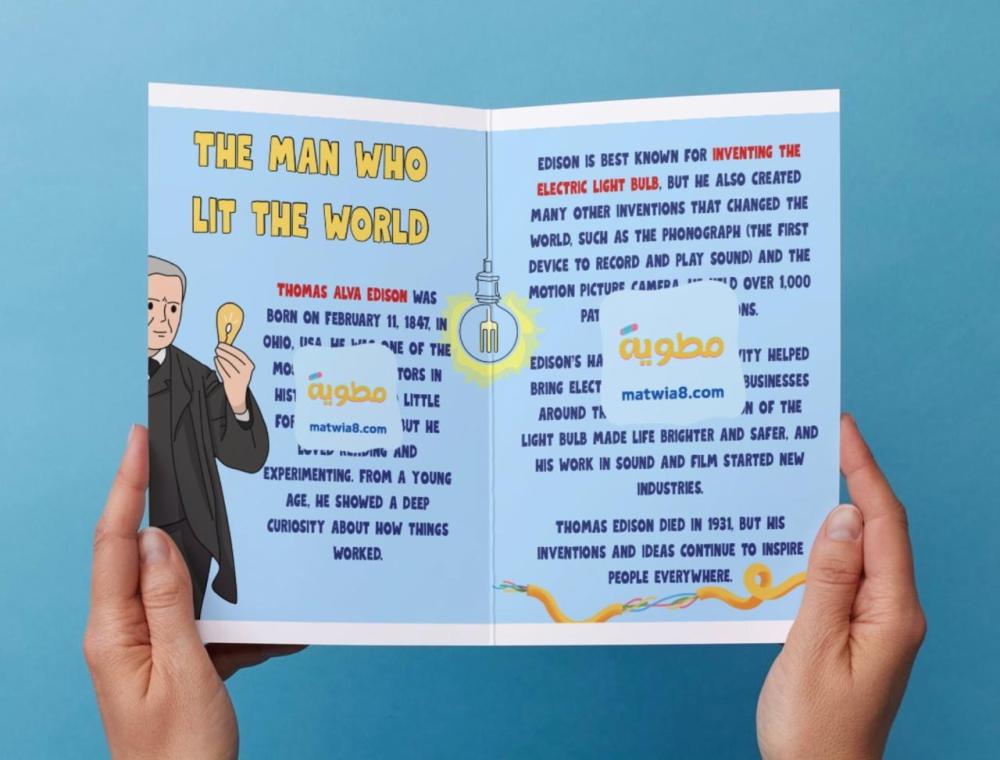 THE MAN WHO
LIT THE WORLD
THOMAS ALVA EDISON WAS
BORN ON FEBRUARY 11, 1847, IN
OHIO, USA. HE WAS ONE OF THE
IN
LITTLE
BUT HE
LOVED READING AND
EXPERIMENTING. FROM A YOUNG
AGE, HE SHOWED A DEEP
CURIOSITY ABOUT HOW THINGS
WORKED.
مطوية
matwia8.com
EDISON IS BEST KNOWN FOR INVENTING THE
ELECTRIC LIGHT BULB, BUT HE ALSO CREATED
MANY OTHER INVENTIONS THAT CHANGED THE
WORLD, SUCH AS THE PHONOGRAPH (THE FIRST
DEVICE TO RECORD AND PLAY SOUND) AND THE
MOTION PICTURE CAMERA. HE HELD OVER 1,000
EDISON'S HELPED
BRING BUSINESSES
AROUND OF THE
LIGHT BULB MADE LIFE BRIGHTER AND SAFER, AND
HIS WORK IN SOUND AND FILM STARTED NEW
INDUSTRIES.
THOMAS EDISON DIED IN 1931, BUT HIS
INVENTIONS AND IDEAS CONTINUE TO INSPIRE
PEOPLE EVERYWHERE.
مطوية
matwia8.com